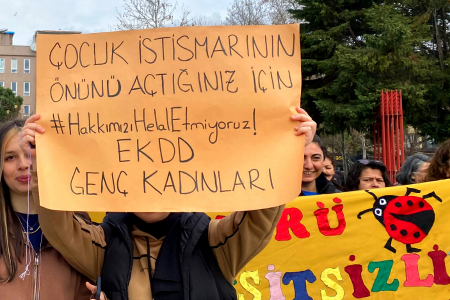 ÇOCUK İSTİSMARININ
ÖNÜNÜ AÇTIĞINIZ İÇİN
#HakkımızıHelalEtmiyoruz!
EKDD
GENÇ KADINLARI
RÜ
SİTSİZLİ